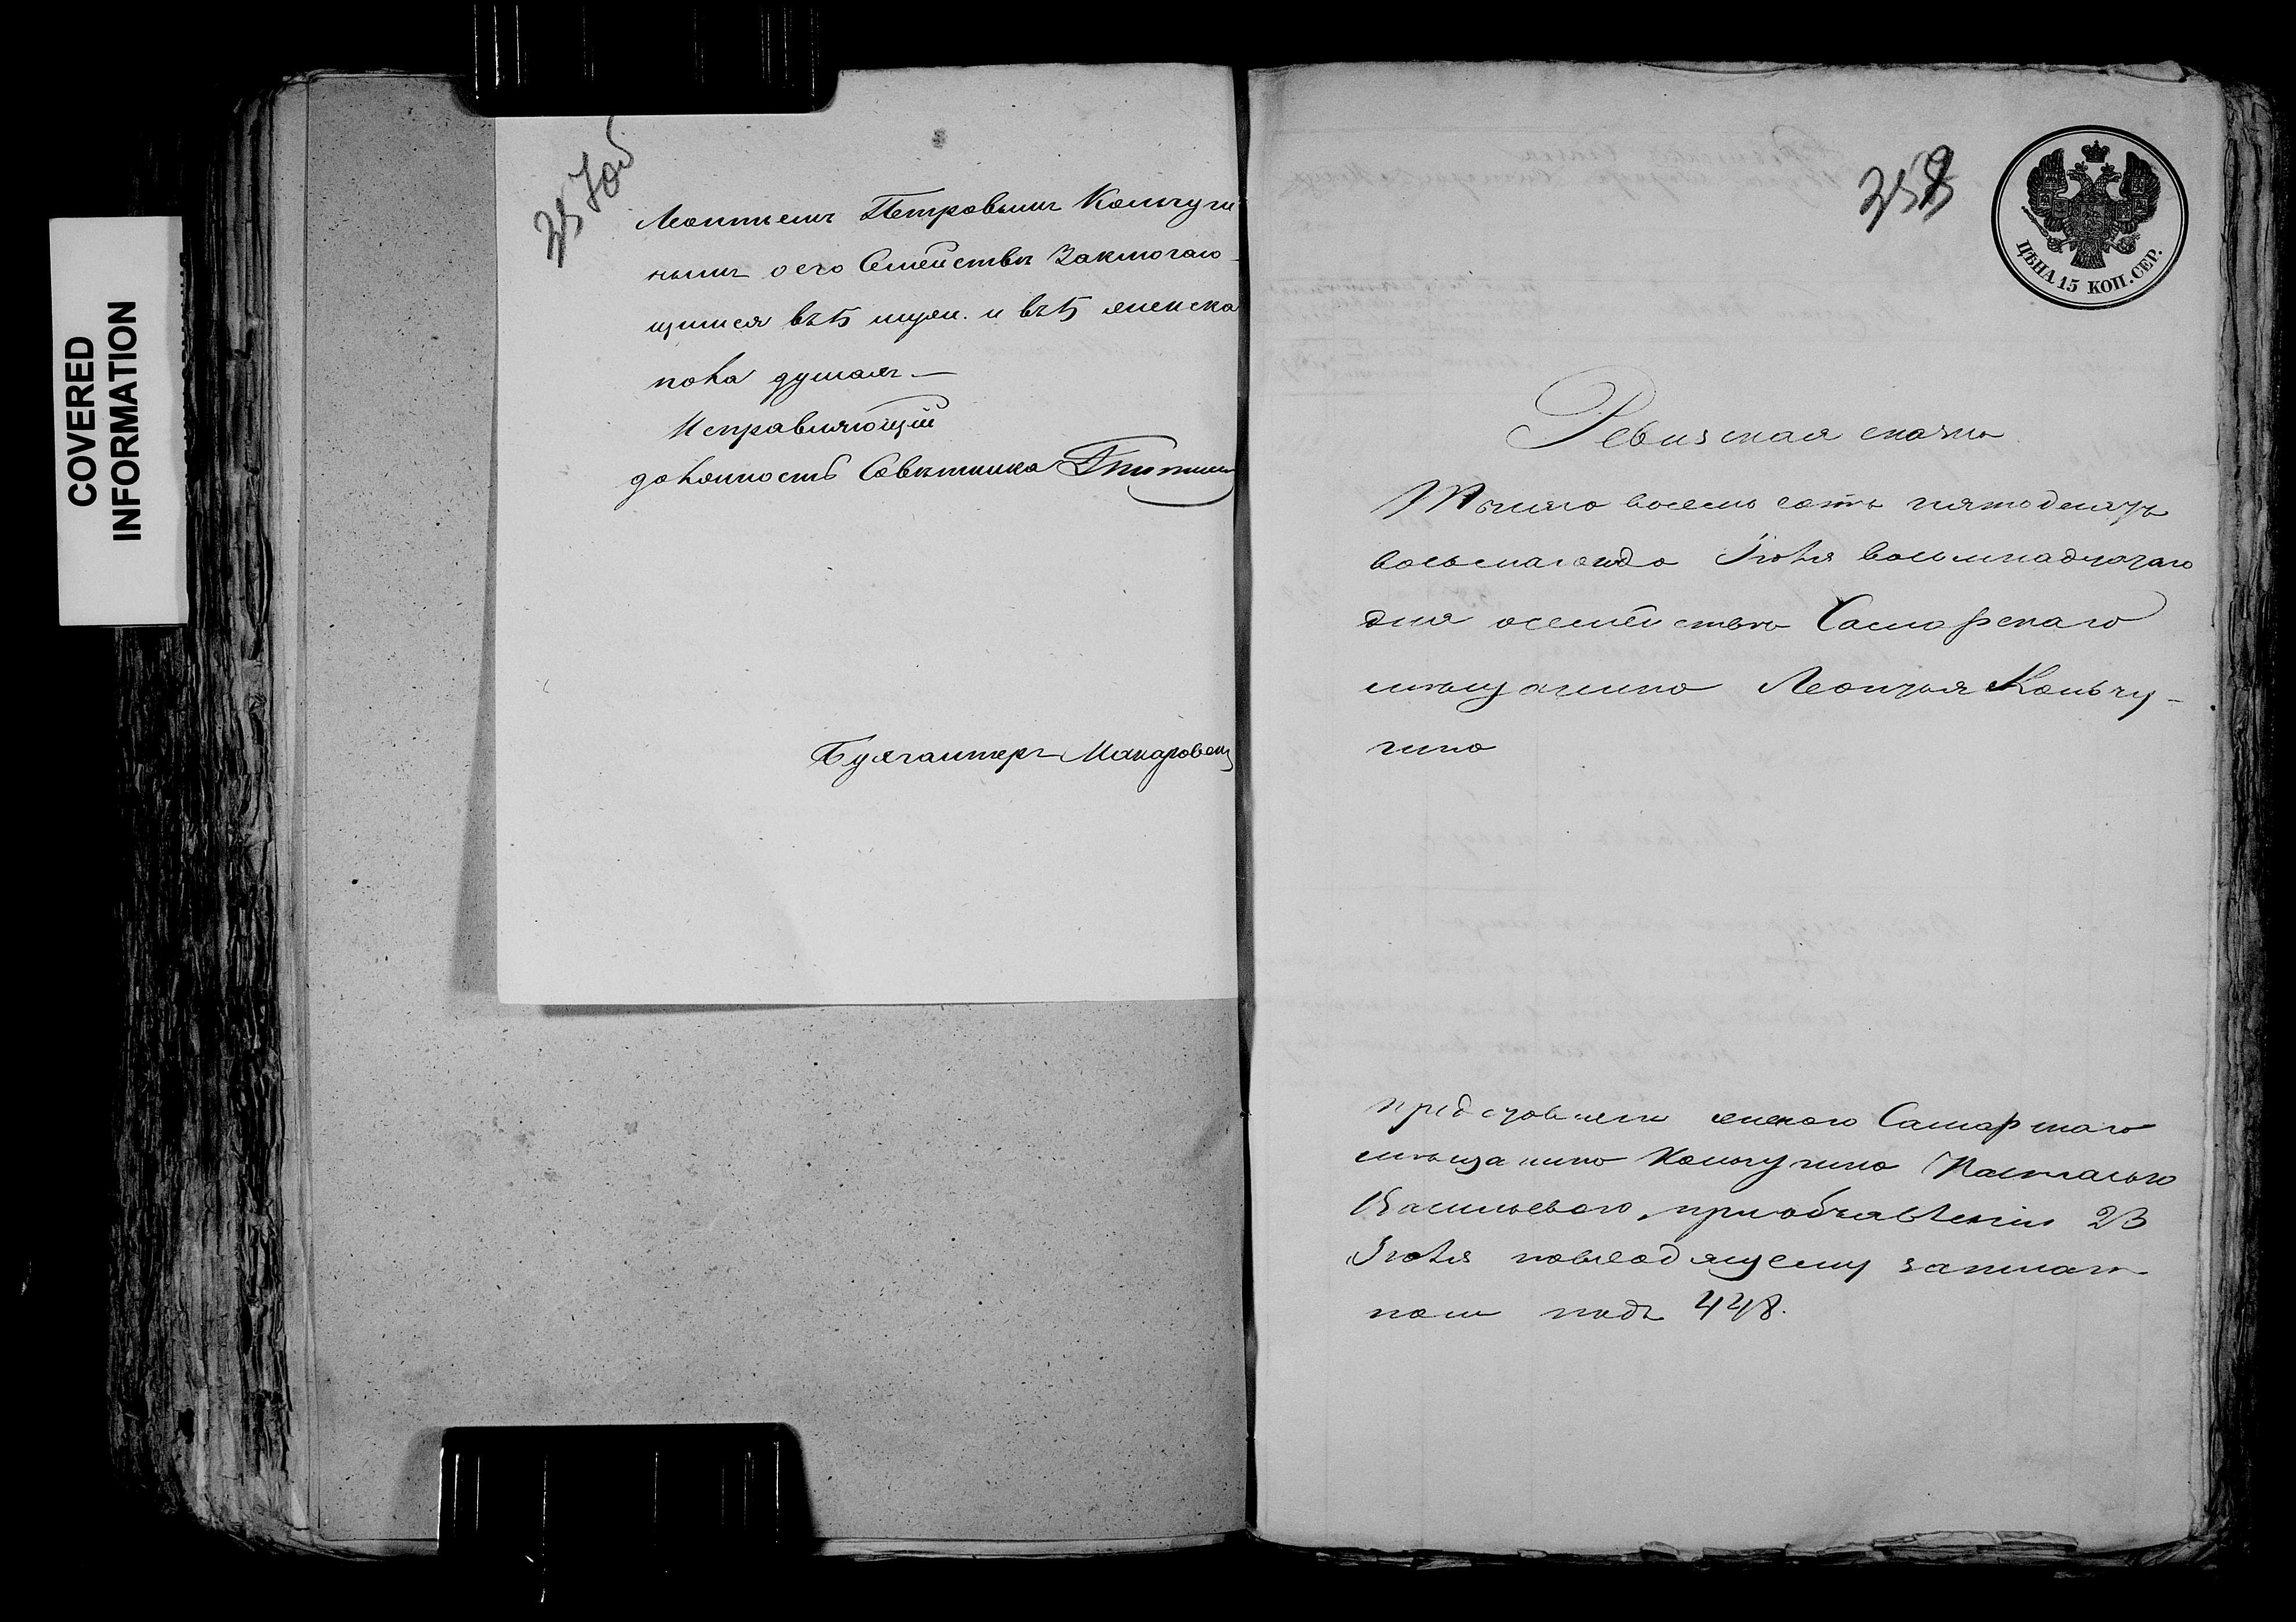 COVERED
INFORMATION
257об
Леонтьемъ Петровымъ Кольчуги
нымъ о его Семействѣ Заключаю
щимся въ 5 муж. и въ 5 женска
пола душахъ —
Исправляющій
должность Совѣтника
Бухгалтеръ Макаровъ
358
ЦѢНА 15 КОП. СЕР.
Ревизская сказка
Тысяча восемь сотъ пятодесятъ
восьмагода Іюля восемнадцатаго
дня осемействѣ Самарскаго
мѣщанина Леонтья Кольчу-
гина
представлена женою Самарскаго
мѣщанина Кольчугина Настасьею
Васильевою, приобъявленіи 23
Іюля повходящему записан
ном подъ 448.